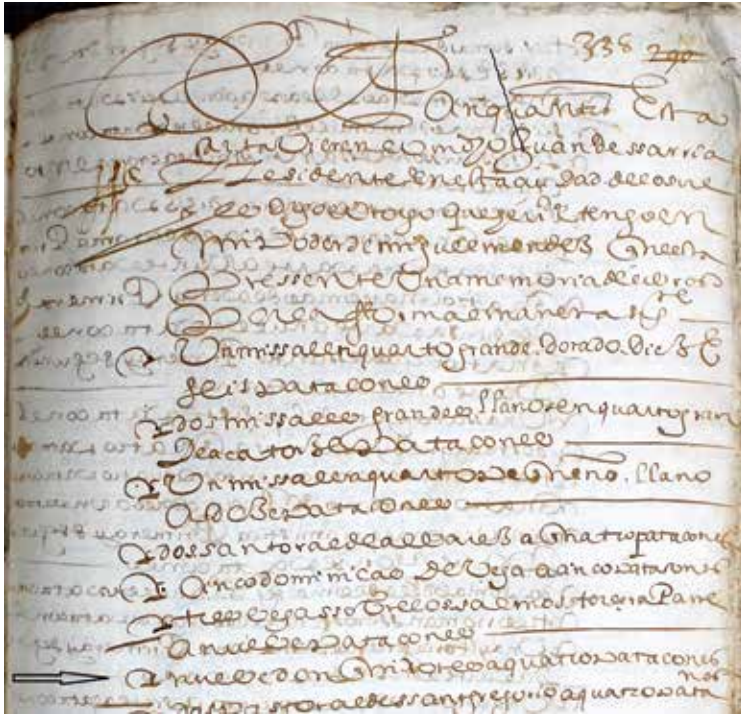 338 290
En quantos esta
carta vieren como yo Juan de ssarria
Residente en esta ciudad de los rre
yes digo e otorgo que rrecivi e tengo en
mi poder de miguel mendez en esta
pressente una memoria de libros
de la forma e manera sigte
Un missal en quarto grande dorado diez e
seis patacones
dos missales grandes llanos en quarto gran
de a catorze patacones
Un missal en quarto pequeño llano
a doze patacones
dos santorales de a quatro patacones
cinco dominicas de Vega a cinco patacones
tres Vegas sobre los salmos tercera Parte
a nueve patacones
nueve don quixotes a quatro patacones
dos pastorales de ssant gregorio a quatro pata
nes